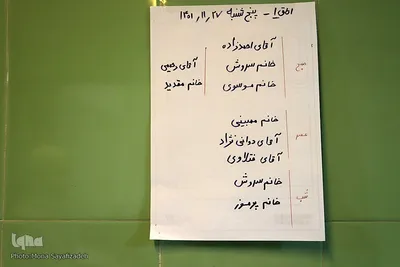 اتاق ۱ - پنج شنبه ۱۴۰۱,۱۱,۲۷
صبح
آقای احمدزاده
خانم سروش آقای رجبی
خانم موسوی خانم مقدید
عصر
خانم معینی
آقای دوانی نژاد
آقای قتلاوی
شب
خانم سروش
خانم پرموز
iqna
Photo:Monai Sayahzadeh